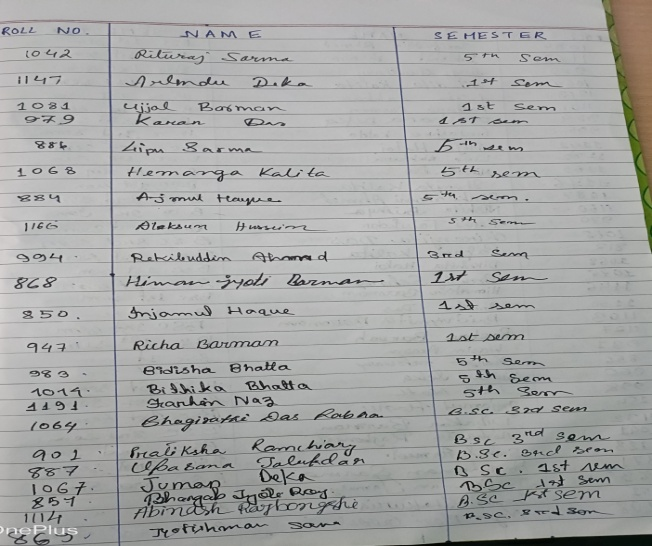 ROLL NO. NAME SEMESTER
1042 Rituraj Sarma 5th Sem
1147 Deka 1st Sem
1081 Ujjal Barman 1st Sem
979 Karan Das 1st sem
886 Lipu Sarma 5th sem
1068 Hemanga Kalita 5th sem
884 Ajmul Haque 5th sem.
1166 5th Sem
994. Rekibuddin Ahmed 3rd Sem
868 Himan Jyoti Barman 1st Sem
850. Injamul Haque 1st sem
947 Richa Barman 1st sem
983. Bidisha Bhatta 5th Sem
1014. Bithika Bhatta 5th Sem
1191. Naz 5th Sem
1064 Das Rabha B.Sc. 3rd sem
901 Pratiksha Ramchiary BSc 3rd sem
887 Upasana Talukdar B.Sc. 3rd sem
1067. Juman Deka B Sc. 1st sem
857 Bhargab Jyoti Roy BSc 1st sem
1114 Abinash Rajbongshi B.Sc 1st sem
865 Jyotishman B.Sc. 3rd sem
OnePlus